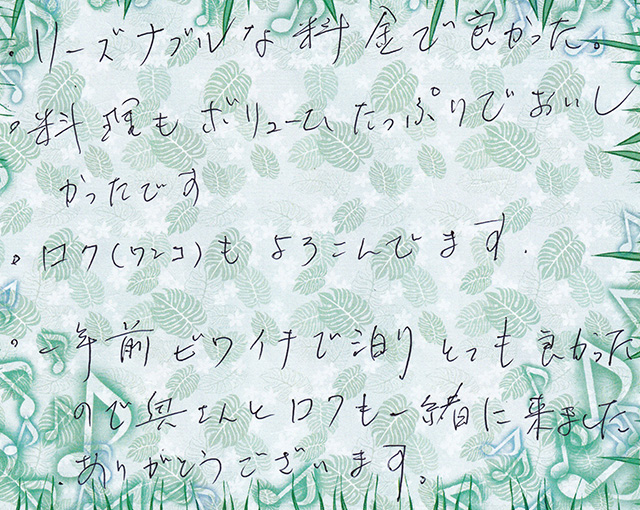 ・リーズナブルな料金で良かった。
。料理もボリュームたっぷりでおいし
かったです
。ロク(ワンコ)もよろこんでます.
。一年前ビワイチで泊りとっても良かった
ので奥さんとロクも一緒に来ました
.ありがとうございます。